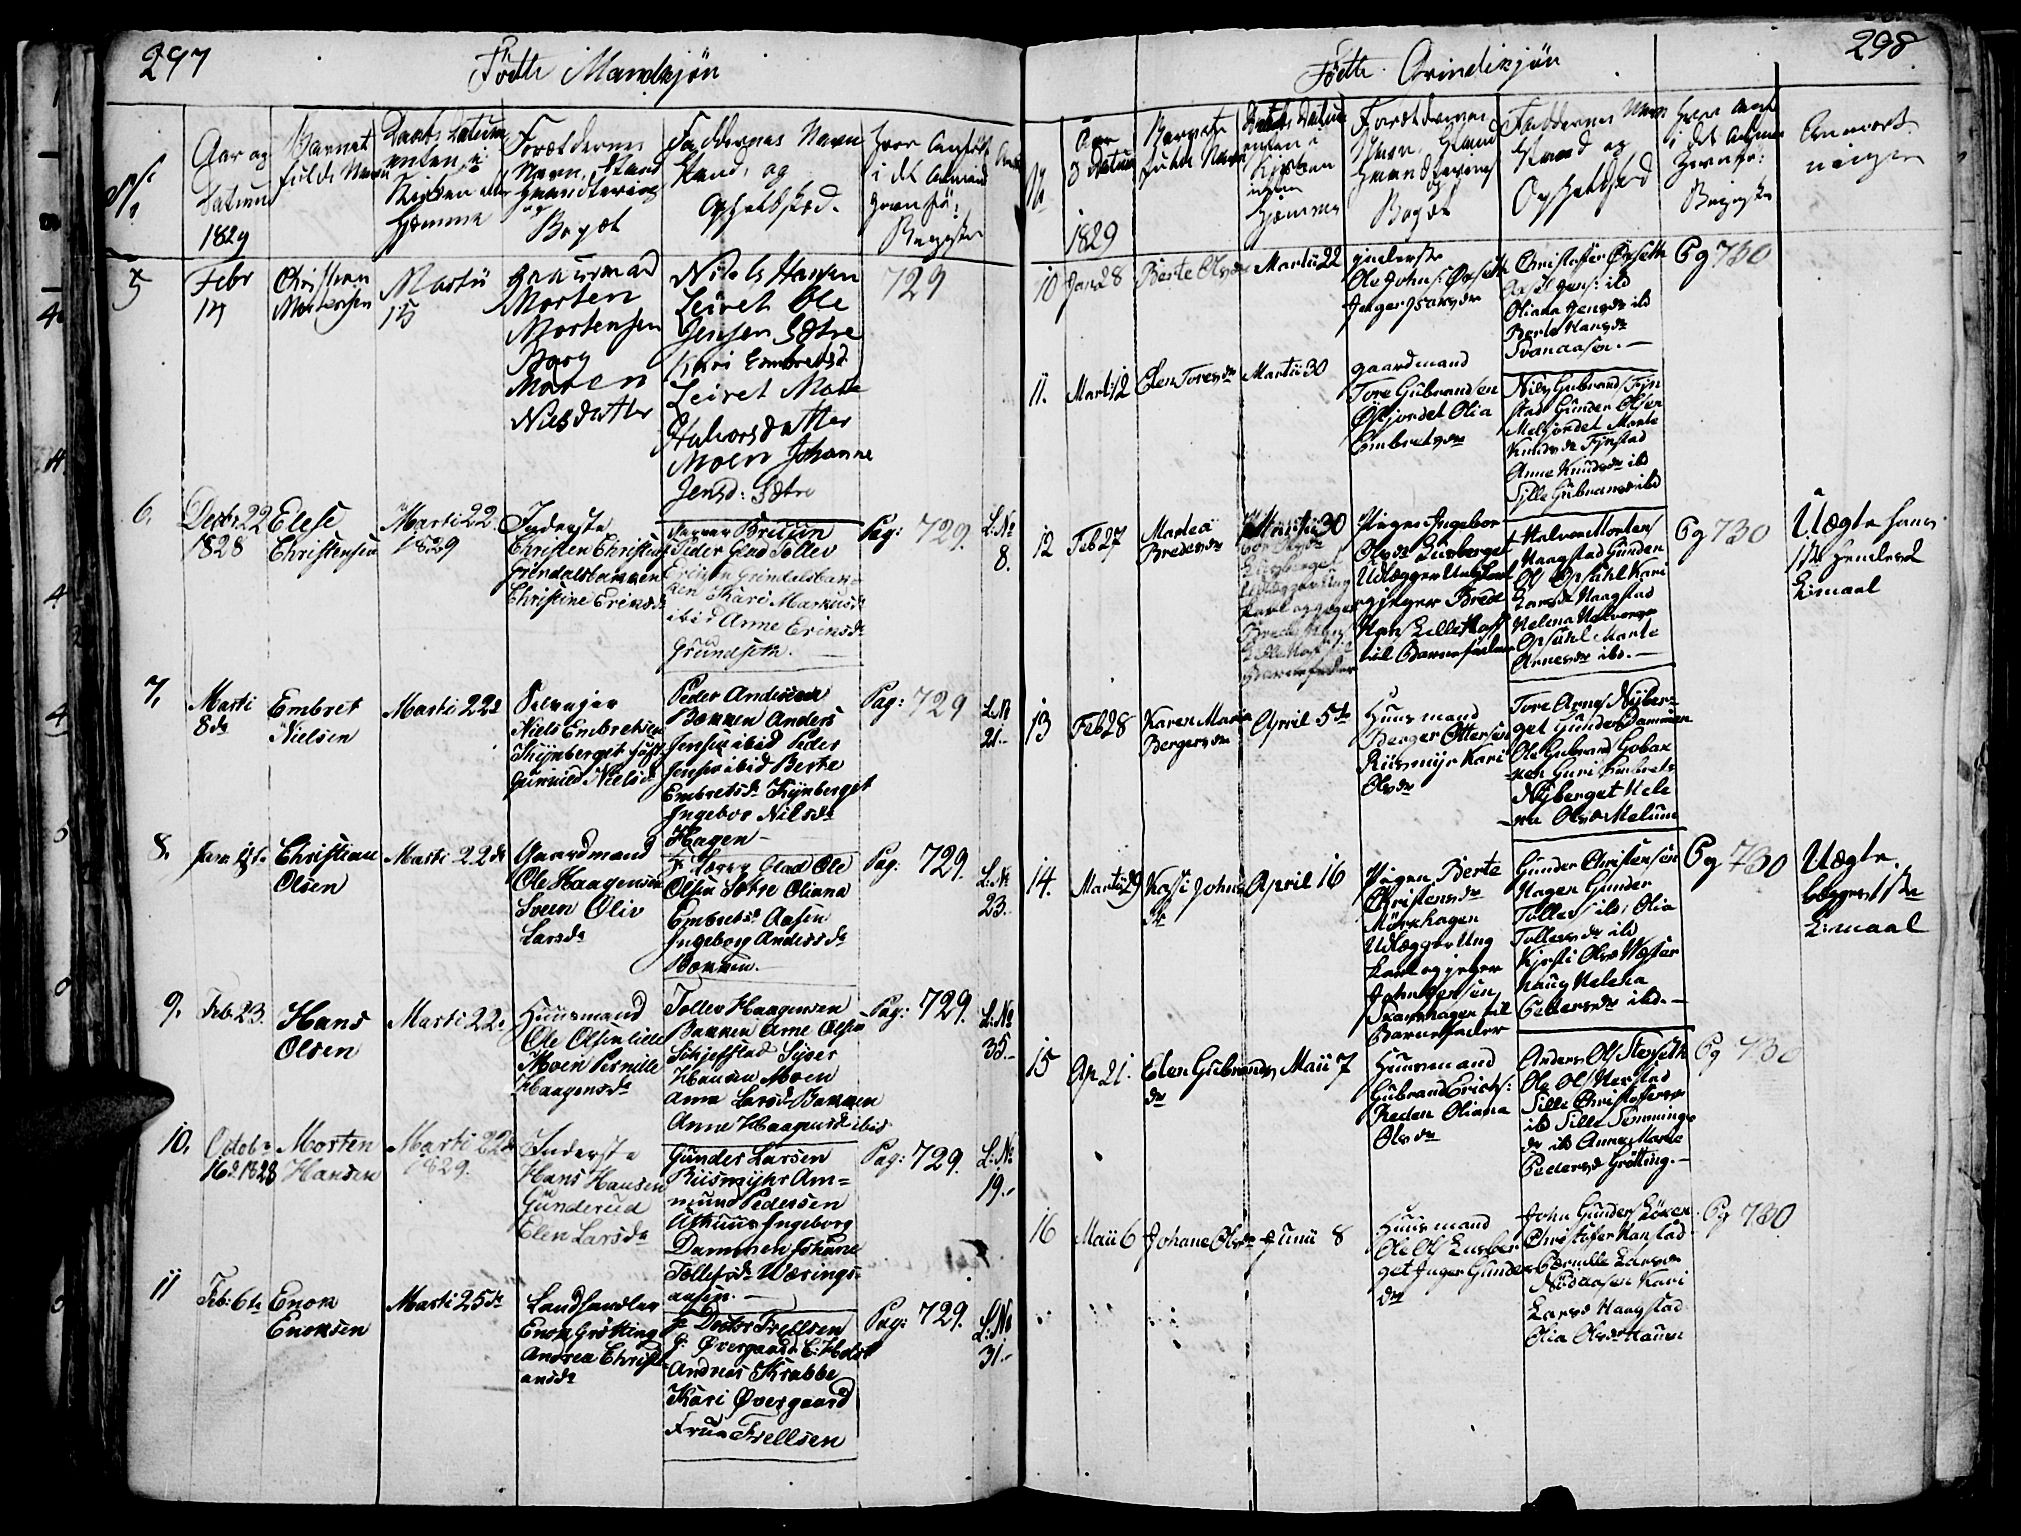 297
Födte Mandkjøn
No
Aar og
Datum
1829
Barnets
fulde Navn
Daabs Datum
enten i
Kirken eller
Hjemme
Forældrenes
Navn, Stand
Haandtering
og
Bopæl
Faddernes Navn
Stand, og
Opholdsted.
Hvor Anført
i det Almind
Jevnfø:
Register
5
Febr
14
Christian
Mortensen
Martii
15
Gaardmand
Morten
Mortensen
Berg
Maren
Nielsdatter
Niels Hansen
Leiret Ole
Jensen Sætre
Kari Embretsd
Leiret Mate
Halvorsdatter
Moen Johanne
Jensd: Sætre
729
6.
Decbr 22
1828
Elese
Christensen
Marti 22
1829
Inderste
Christen Christens
Grindalsbakken
Christine Ericsdr
Peder Glad Tollev
Ericsen Grindelsbak-
ken Kari Markusdr
ibid Anne Ericsdr
Grundseth.
Pag: 729.
L: No
8.
7.
Marti
8de
Embret
Nielsen
Marti 22d
Selveejer
Niels Embretsen
Kynberget
Gunnild Nielsdr
Peder Andersen
Bakken Anders
Jensen ibid Peder
Jensen ibid Berthe
Embretsdr Kynberget
Ingebor Nilsdr
Hagen -
Pag: 729
L: No
21.
8.
Jan 1ste
Christian
Olsen
Marti 22de
Gaardmand
Ole Haagensen
Sveen Oliv
Larsdr
Olsen Sætre Oliana
Embretsdr Aasen
Ingeborg Andersdr
Bakken.
Pag: 729.
L: No
23.
9.
Feb: 23.
Hans
Olsen
Marti 22de
Huusmand
Ole Olsen lille
Moen Pernille
Haagensdr
Tollev Haagensen
Bakken Arne Olsen
Schjefstad Syver
Hansen Moen
Anne Larsdr Bakken
Anne Haagensdr ibid
Pag: 729.
L: No
35.
10.
Octobr
16d 1828
Morten
Hansen
Marti 22de
1829.
Inderste
Hans Hansen
Gunderud
Elen Larsdr
Gunder Larsen
Riismyhr Am=
mund Pedersen
Ingeborg
Dammen Johane
Tollefsdr Wærings-
aasen.
Pag: 729.
L: No
19.
11
Feb: 6te
Enok
Enoksen
Marti 25de
Landhandler
Enok Grötting
Andrea Christi
ansdr
Hr Doctor Frellsen
Hr Øvergaard C: Holst
Andreas Krabbe
Kari Øvergaard
Frue Frellsen
Pag: 729.
L: No
31.
298
Fødte Qvindekjøn
No
Aar
& Datum
1829
Barnets
fulde Navn
Daabs Datum
enten i
Kirken
eller
Hjemme
Forældrenes
Navn, Stand
Haandtering
og
Bopæl
Faddernes Navn
Stand og
Opholdsted
Hvor Anført
i det Almind
Jevnfø:
Register
Anmærk
ninger
10
Jan 28
Berte Olsdr
Martii 22
Inderste
Ole Johns: Ørseth
Inger Isaksdr
Christofer Ørseth
Axsel Jens: ibd
Oliana Jensdr ibd
Berte Hansdr
Svenaasen.
Pg 730
11.
Marti 12
Elen Toresdr
Martii 30
Gaardmand
Tore Gubrandsen
Østjordet Olia
Embretsdr
Nils Gubrands Fyn
stad Gunder Olsen
Meljordet Marte
Knudsdr Fynstad
Anne Knudsdr ibd
Sille Gubransdr ibd
12
Feb 27
Martea
Bredesdr
Martii 30
Pigen Ingebor
Olsdr Eisberget
Udlægger Ungkarl
og jæger Brede
Hans Lillehoff
til Barnefader
Halvor Mortens
Haagstad Gunder
Ols Opsahl Kari
Larsdr Haagstad
Helena Halvorsdr
Opsahl Marte
Arnesdr ibd.
Pg 730
Uægte hans
1ste hendes 2
L:maal
13
Feb 28
Karen Maria
Bergersdr
April 5te
Huusmand
Berger Ottersen
Riismyr Kari
Olsdr
Tore Arnes Nyber-
get Gunder Dammen
Ole Gubrands Gobak
ken Guri Embrets
Nyberget Hele
na Olsdr Melum
14.
Martii 29
Kasi Johns
dr
April 16
Pigen Berte
Christensdr
Mörkhagen
Udlægger Ung
karl og jæger
John Jensen
Skarshagen til
Barnefader
Gunder Christensen
Hagen Gunder
Tollefs ibd; Olia
Tollefsdr ibd
Kjersti Olsdr Wæster
haug Helena
Pedersdr ibd.
Pg 730
Uægte.
begges 1ste
L:maal
15
Ap 21.
Elen Gubrands
dr
Maii 7
Huusmand
Gubrand Erichs:
Kaden Oliana
Olsdr
Anders Ols Storseth
Ole Ols Harstad
Sille Christofersdr
ibd Sille Simmings
dr ibd Anne Marie
Pedersdr Grötting.
Pg 730
16
Maii 6
Johane Olsdr
Junii 8
Huusmand
Ole Ols Eisber
get Inger Gunders
dr
John Gunders Löken
Christofer Harstad
Pernille Larsdr
Nödaasen Kari
Larsdr Haagstad
Olia Olsdr Hauen
Pg 730